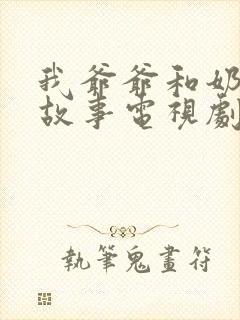 我爺爺和奶
故事電視劇
執筆鬼畫符